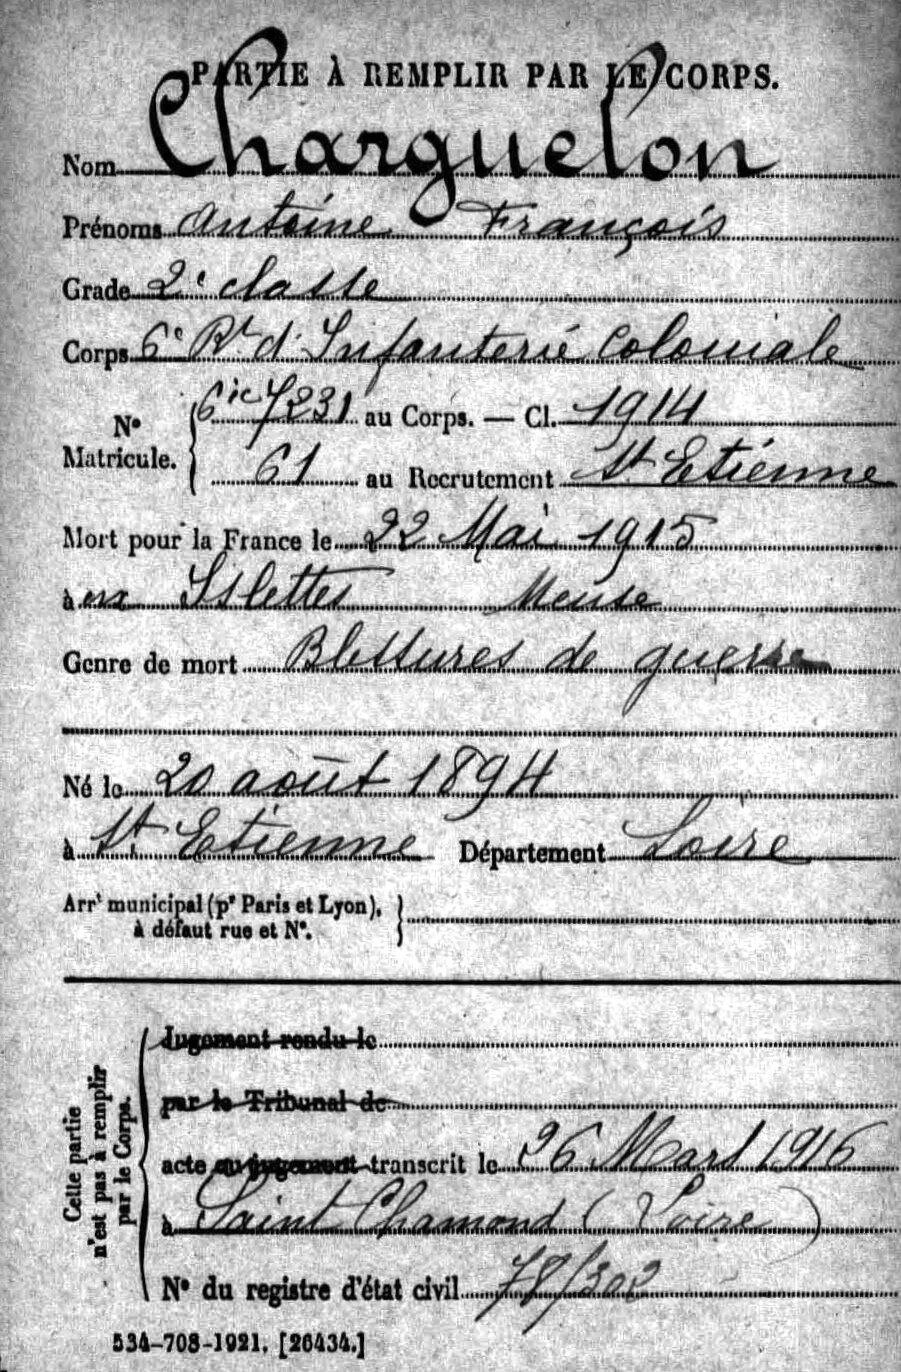 PARTIE À REMPLIR PAR LE CORPS.
Nom Charguelon
Prénoms Antoine François
Grade 2e classe
Corps 6e Rt d'Infanterie Coloniale
No Matricule. { 6ic 7231 au Corps. — Cl. 1914
61 au Recrutement St Etienne
Mort pour la France le 22 Mai 1915
à ux Islettes Meuse
Genre de mort Blessures de guerre
Né le 20 août 1894
à St Etienne Département Loire
Arrt municipal (pr Paris et Lyon), }
à défaut rue et No.
Cette partie
n'est pas à remplir
par le Corps.
Jugement rendu le
par le Tribunal de
acte ou jugement transcrit le 26 Mars 1916
à Saint Chamond (Loire)
No du registre d'état civil 78/302
534-708-1921. [26434.]